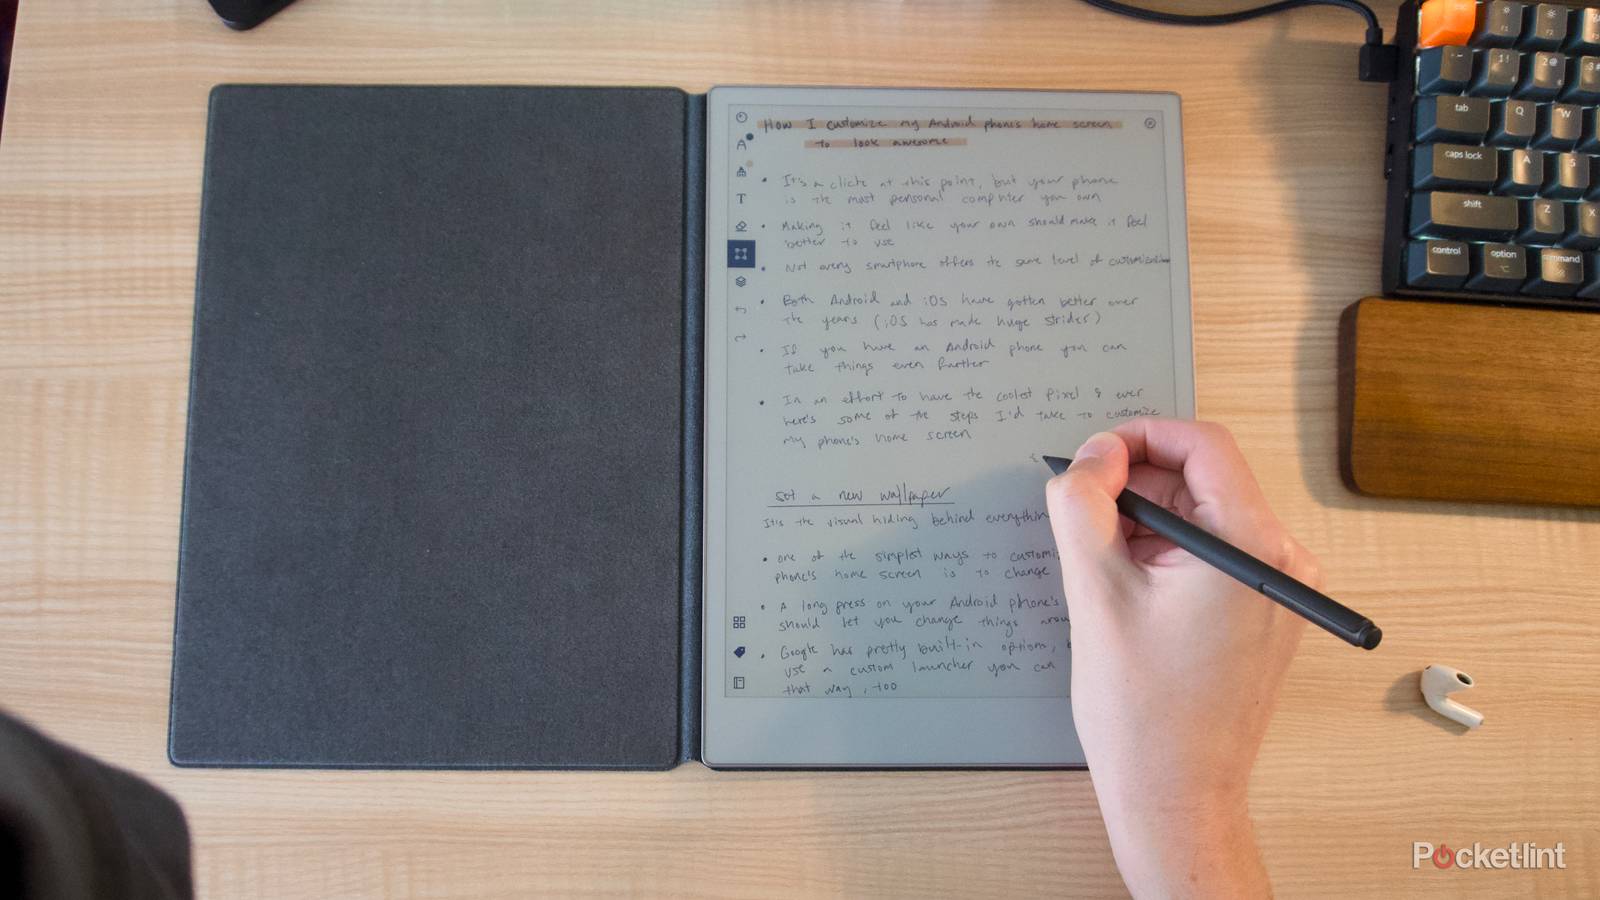 How I customize my Android phone's home screen
to look awesome
• It's a cliche at this point, but your phone
is the most personal computer you own
• Making it feel like your own should make it feel
better to use
• Not every smartphone offers the same level of customization
• Both Android and iOS have gotten better over
the years (iOS has made huge strides)
• If you have an Android phone you can
take things even further
• In an effort to have the coolest Pixel 8 ever
here's some of the steps I'd take to customize
my phone's home screen
Set a new wallpaper
It's the visual hiding behind everythin
• one of the simplest ways to customi
phone's home screen is to change
• A long press on your Android phone's
should let you change things arou
• Google has pretty built-in options,
use a custom launcher you can
that way, too
T
esc
F1
F2
~
1!
2@
3#
tab
Q
W
caps lock
A
S
shift
Z
X
control
option
command
Pocket-lint